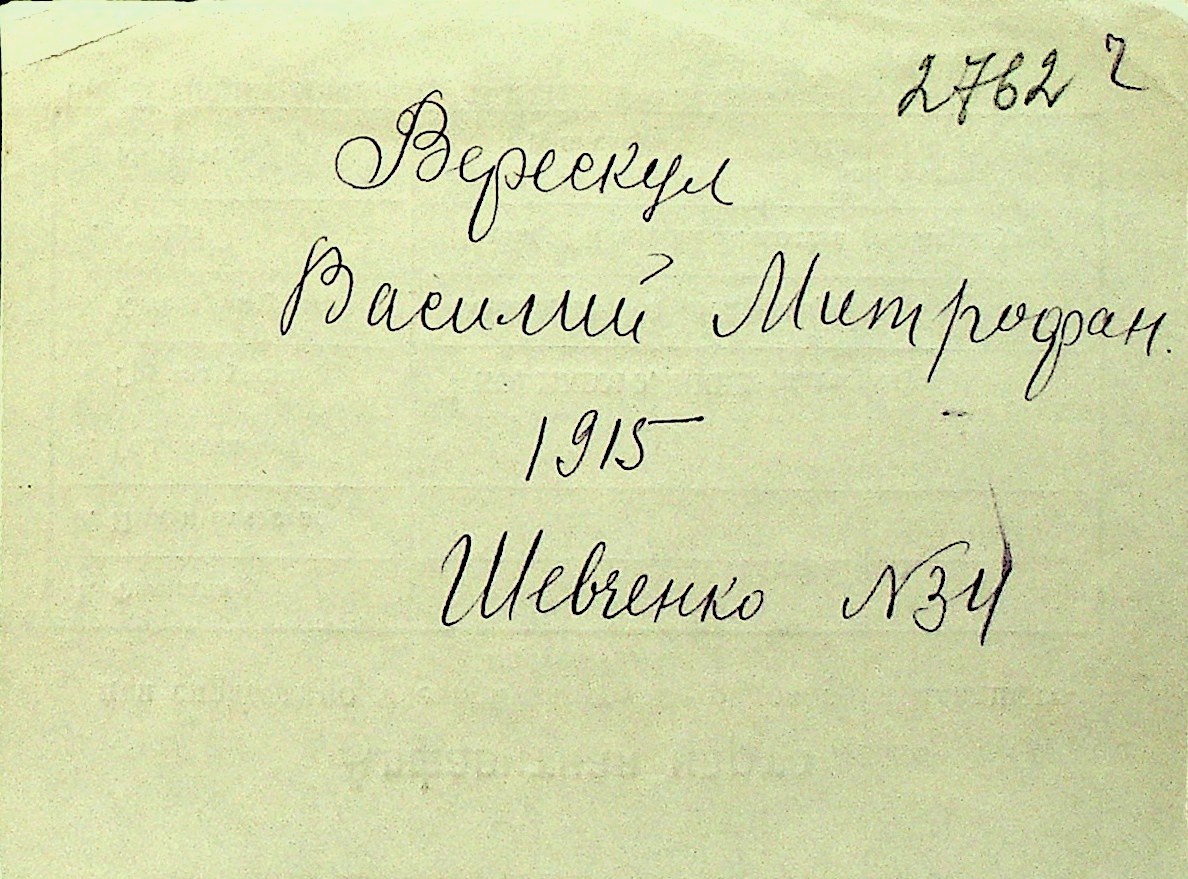 2762 г
Верескул
Василий Митрофан.
1915
Шевченко N34